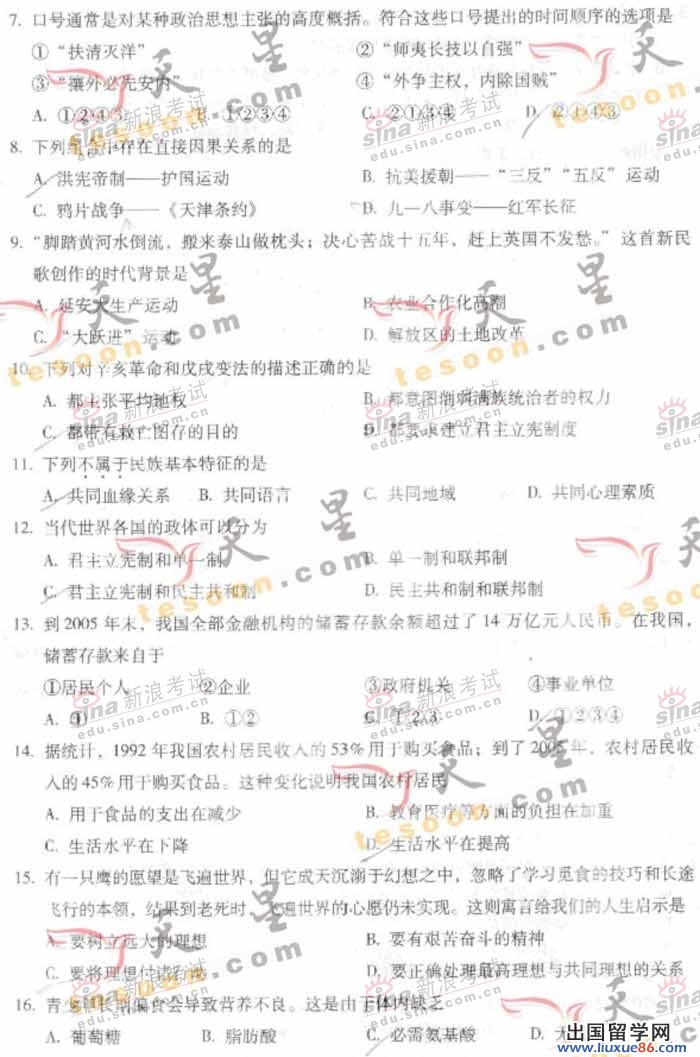 7. 口号通常是对某种政治思想主张的高度概括。符合这些口号提出的时间顺序的选项是
① “扶清灭洋” ② “师夷长技以自强”
③ “攘外必先安内” ④ “外争主权，内除国贼”
A. ①②④③ B. ①②③④ C. ②①③④ D. ②①④③
8. 下列组合中存在直接因果关系的是
A. 洪宪帝制——护国运动 B. 抗美援朝——“三反”“五反”运动
C. 鸦片战争——《天津条约》 D. 九一八事变——红军长征
9. “脚踏黄河水倒流，搬来泰山做枕头；决心苦战十五年，赶上英国不发愁。” 这首新民
歌创作的时代背景是
A. 延安大生产运动 B. 农业合作化高潮
C. “大跃进” 运动 D. 解放区的土地改革
10. 下列对辛亥革命和戊戌变法的描述正确的是
A. 都主张平均地权 B. 都意图削弱满族统治者的权力
C. 都带有救亡图存的目的 D. 都要求建立君主立宪制度
11. 下列不属于民族基本特征的是
A. 共同血缘关系 B. 共同语言 C. 共同地域 D. 共同心理素质
12. 当代世界各国的政体可以分为
A. 君主立宪制和单一制 B. 单一制和联邦制
C. 君主立宪制和民主共和制 D. 民主共和制和联邦制
13. 到 2005 年末，我国全部金融机构的储蓄存款余额超过了 14 万亿元人民币。在我国，
储蓄存款来自于
①居民个人 ②企业 ③政府机关 ④事业单位
A. ① B. ①② C. ①②③ D. ①②③④
14. 据统计，1992 年我国农村居民收入的 53% 用于购买食品；到了 2005 年，农村居民收
入的 45% 用于购买食品。这种变化说明我国农村居民
A. 用于食品的支出在减少 B. 教育医疗等方面的负担在加重
C. 生活水平在下降 D. 生活水平在提高
15. 有一只鹰的愿望是飞遍世界，但它成天沉溺于幻想之中，忽略了学习觅食的技巧和长途
飞行的本领，结果到老死时，飞遍世界的心愿仍未实现。这则寓言给我们的人生启示是
A. 要树立远大的理想 B. 要有艰苦奋斗的精神
C. 要将理想付诸行动 D. 要正确处理最高理想与共同理想的关系
16. 青少年长期偏食会导致营养不良。这是由于体内缺乏
A. 葡萄糖 B. 脂肪酸 C. 必需氨基酸 D.
天星
tesoon.com
sina新浪考试
edu.sina.com.cn
出国留学网
www.liuxue86.com